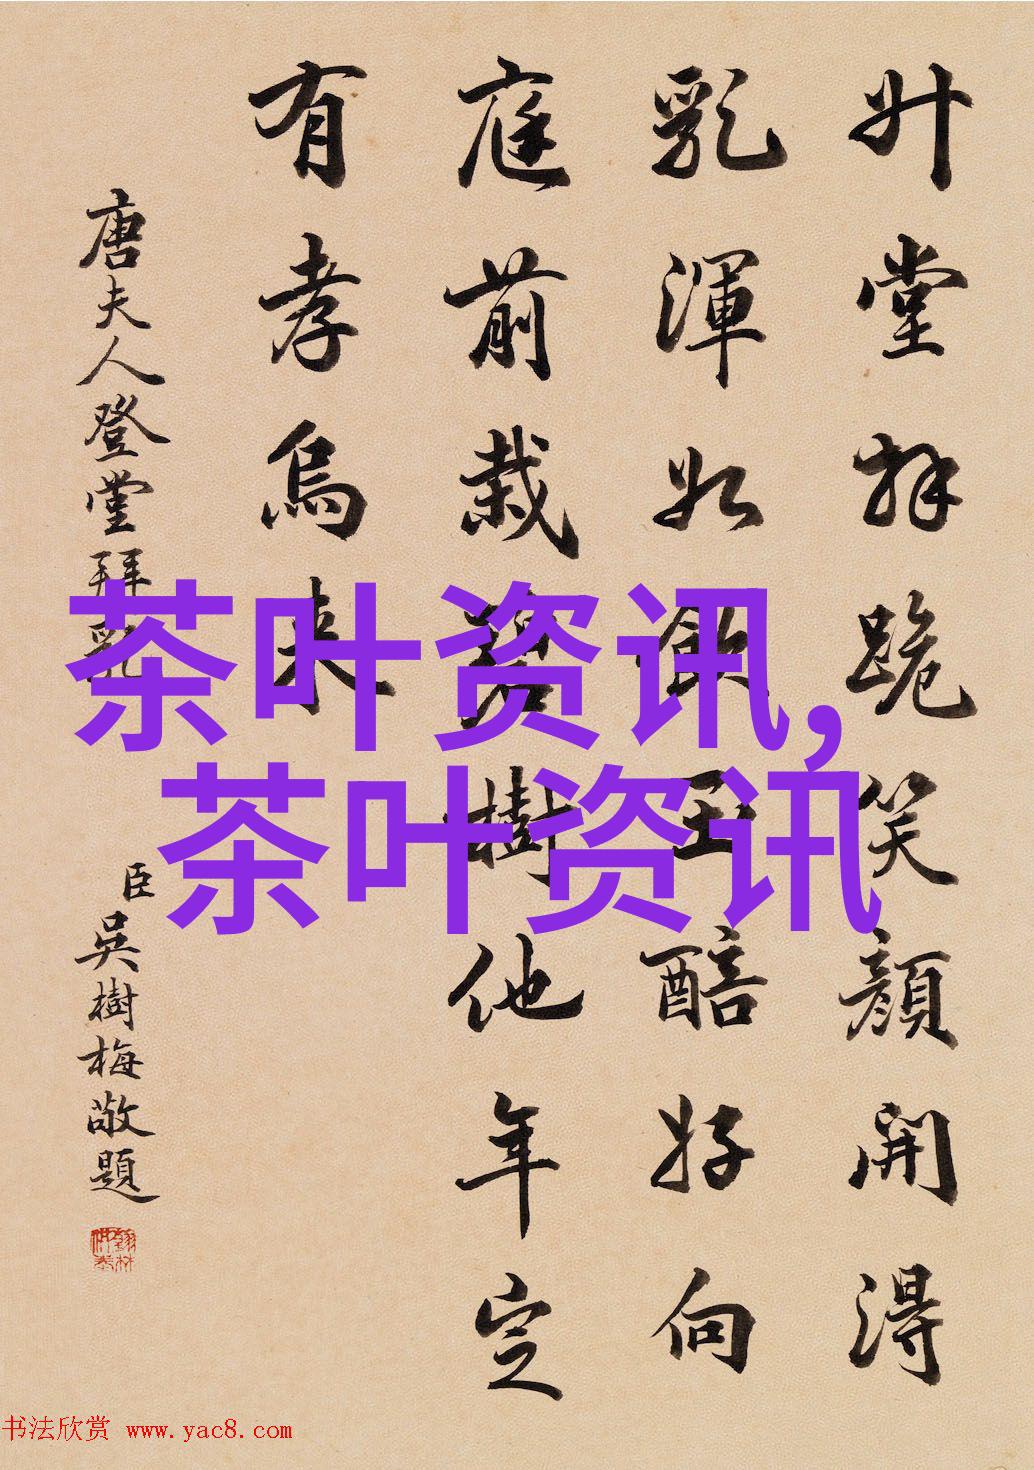 升堂拜跪笑顔開得
乳渾如飲玉醅好向
庭前栽碧樹他年定
有孝烏來
唐夫人登堂拜乳
臣吳樹梅敬題
茶叶资讯,
茶叶资讯
书法欣赏 www.yac8.com